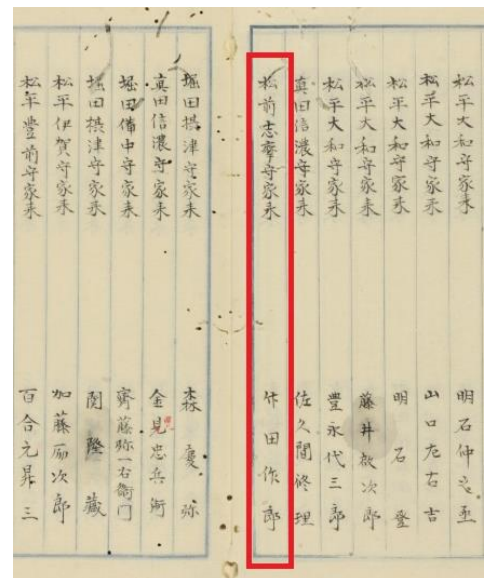 松平大和守家来 明石仲之丞
松平大和守家来 山口左右吉
松平大和守家来 明石登
松平大和守家来 藤井啟次郎
松平大和守家来 豊永代三郎
真田信濃守家来 佐久間修理
松前志摩守家来 作田作郎
堀田摂津守家来 森慶弥
真田信濃守家来 金見忠兵衛
堀田備中守家来 齊藤弥一右衛門
堀田摂津守家来 関陸蔵
松平伊賀守家来 加藤而次郎
松平豊前守家来 百合元昇三